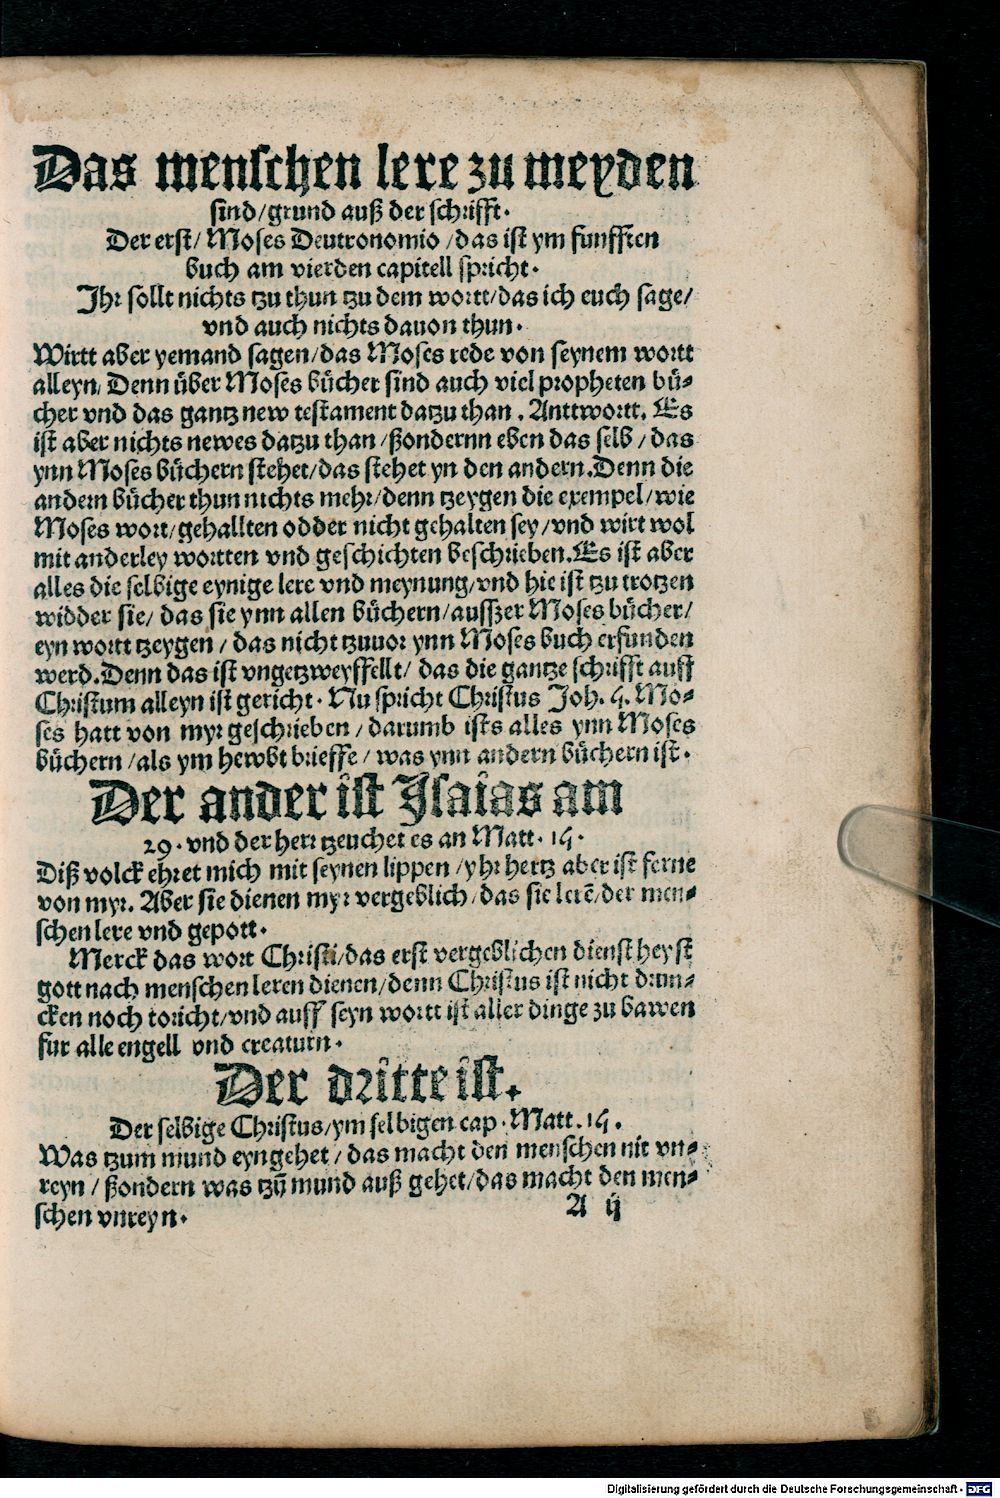 Das menschen lere zu meyden
sind/grund auß der schrifft.
Der erst/ Moses Deutronomio /das ist ym funfften
buch am vierden capitell spricht.
Ihr sollt nichts tzu thun tzu dem wortt/das ich euch sage/
vnd auch nichts dauon thun.
Wirtt aber yemand sagen/das Moses rede von seynem wortt
alleyn, Denn über Moses bücher sind auch viel propheten bü-
cher vnd das gantz new testament datzu than . Anttwortt. Es
ist aber nichts newes datzu than /ßondernn eben das selb / das
ynn Moses büchern stehet/das stehet yn den andern.Denn die
andern bücher thun nichts mehr/denn tzeygen die exempel/wie
Moses wort/gehallten odder nicht gehalten sey/vnd wirt wol
mit anderley wortten vnd geschichten beschrieben.Es ist aber
alles die selbige eynige lere vnd meynung/vnd hie ist tzu trotzen
widder sie/ das sie ynn allen büchern/ausszer Moses bücher/
eyn wortt tzeygen / das nicht tzuuor ynn Moses buch erfunden
werd.Denn das ist vngetzweyffellt/ das die gantze schrifft auff
Christum alleyn ist gericht. Nu spricht Christus Joh. 5. Mo-
ses hatt von myr geschrieben / darumb ists alles ynn Moses
büchern /als ym hewbt brieffe / was ynn andern büchern ist.
Der ander ist Isaias am
29. vnd der herr tzeuchet es an Matt. 15.
Diß volck ehret mich mit seynen lippen /yhr hertz aber ist ferne
von myr. Aber sie dienen myr vergeblich /das sie lerē/der men-
schen lere vnd gepott.
Merck das wort Christi/das erst vergeblichen dienst heyst
gott nach menschen leren dienen/denn Christus ist nicht drun-
cken noch toricht/vnd auff seyn wortt ist aller dinge zu bawen
fur alle engell vnd creaturn.
Der dritte ist.
Der selbige Christus/ym selbigen cap. Matt. 15.
Was tzum mund eyngehet / das macht den menschen nit vn-
reyn / ßondern was tzū mund auß gehet/das macht den men-
schen vnreyn.
A ij
Digitalisierung gefördert durch die Deutsche Forschungsgemeinschaft - DFG